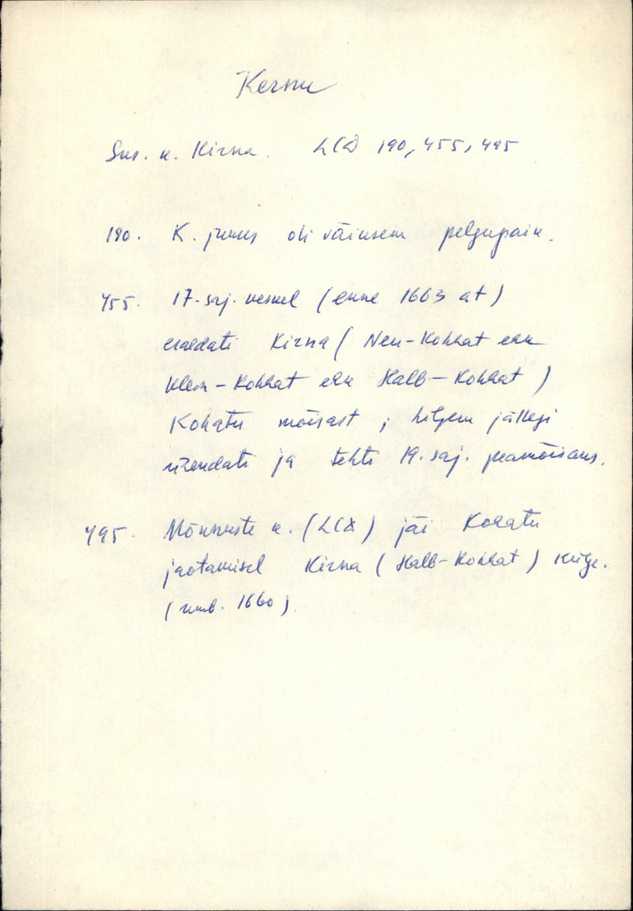 Kernu
Sus. u. Kirna. LCD 190, 455, 495
190. K. juures oli väiksem pelgupaik.
455. 17. saj. keskel (enne 1663 at)
eraldati Kirna (Neu-Kohhat ehk
Klein-Kohhat ehk Halb-Kohhat)
Kohatu mõisast; hiljem jällegi
ühendati ja tehti 19. saj. peamõisaks.
495. Mõnuste k. (LCD) jäi Kohatu
jaotamisel Kirna (Halb-Kohhat) külge.
(umb. 1660).